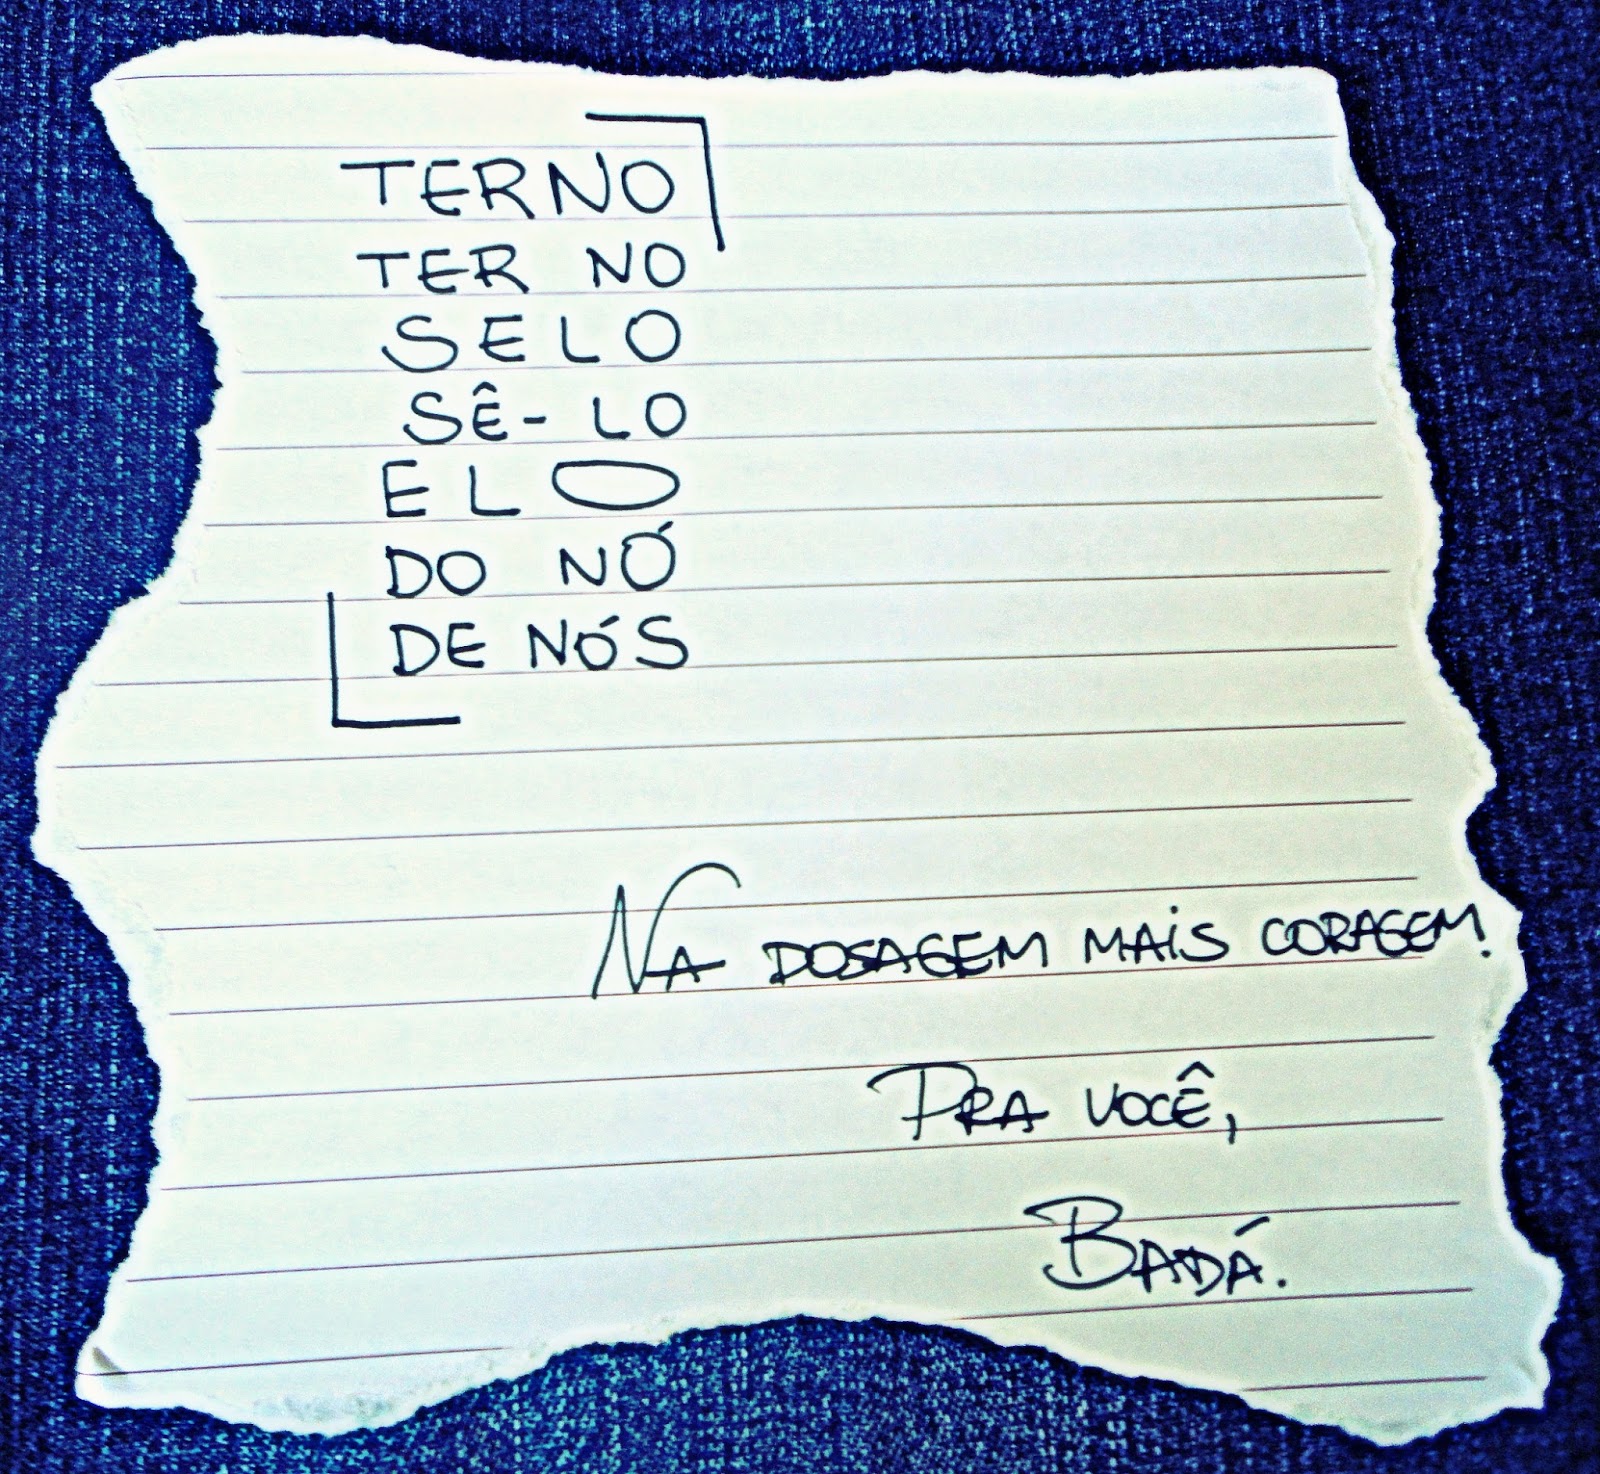 TERNO
TER NO
SELO
SÊ-LO
ELO
DO NÓ
DE NÓS
NA DOSAGEM MAIS CORAGEM!
PRA VOCÊ,
BADÁ.